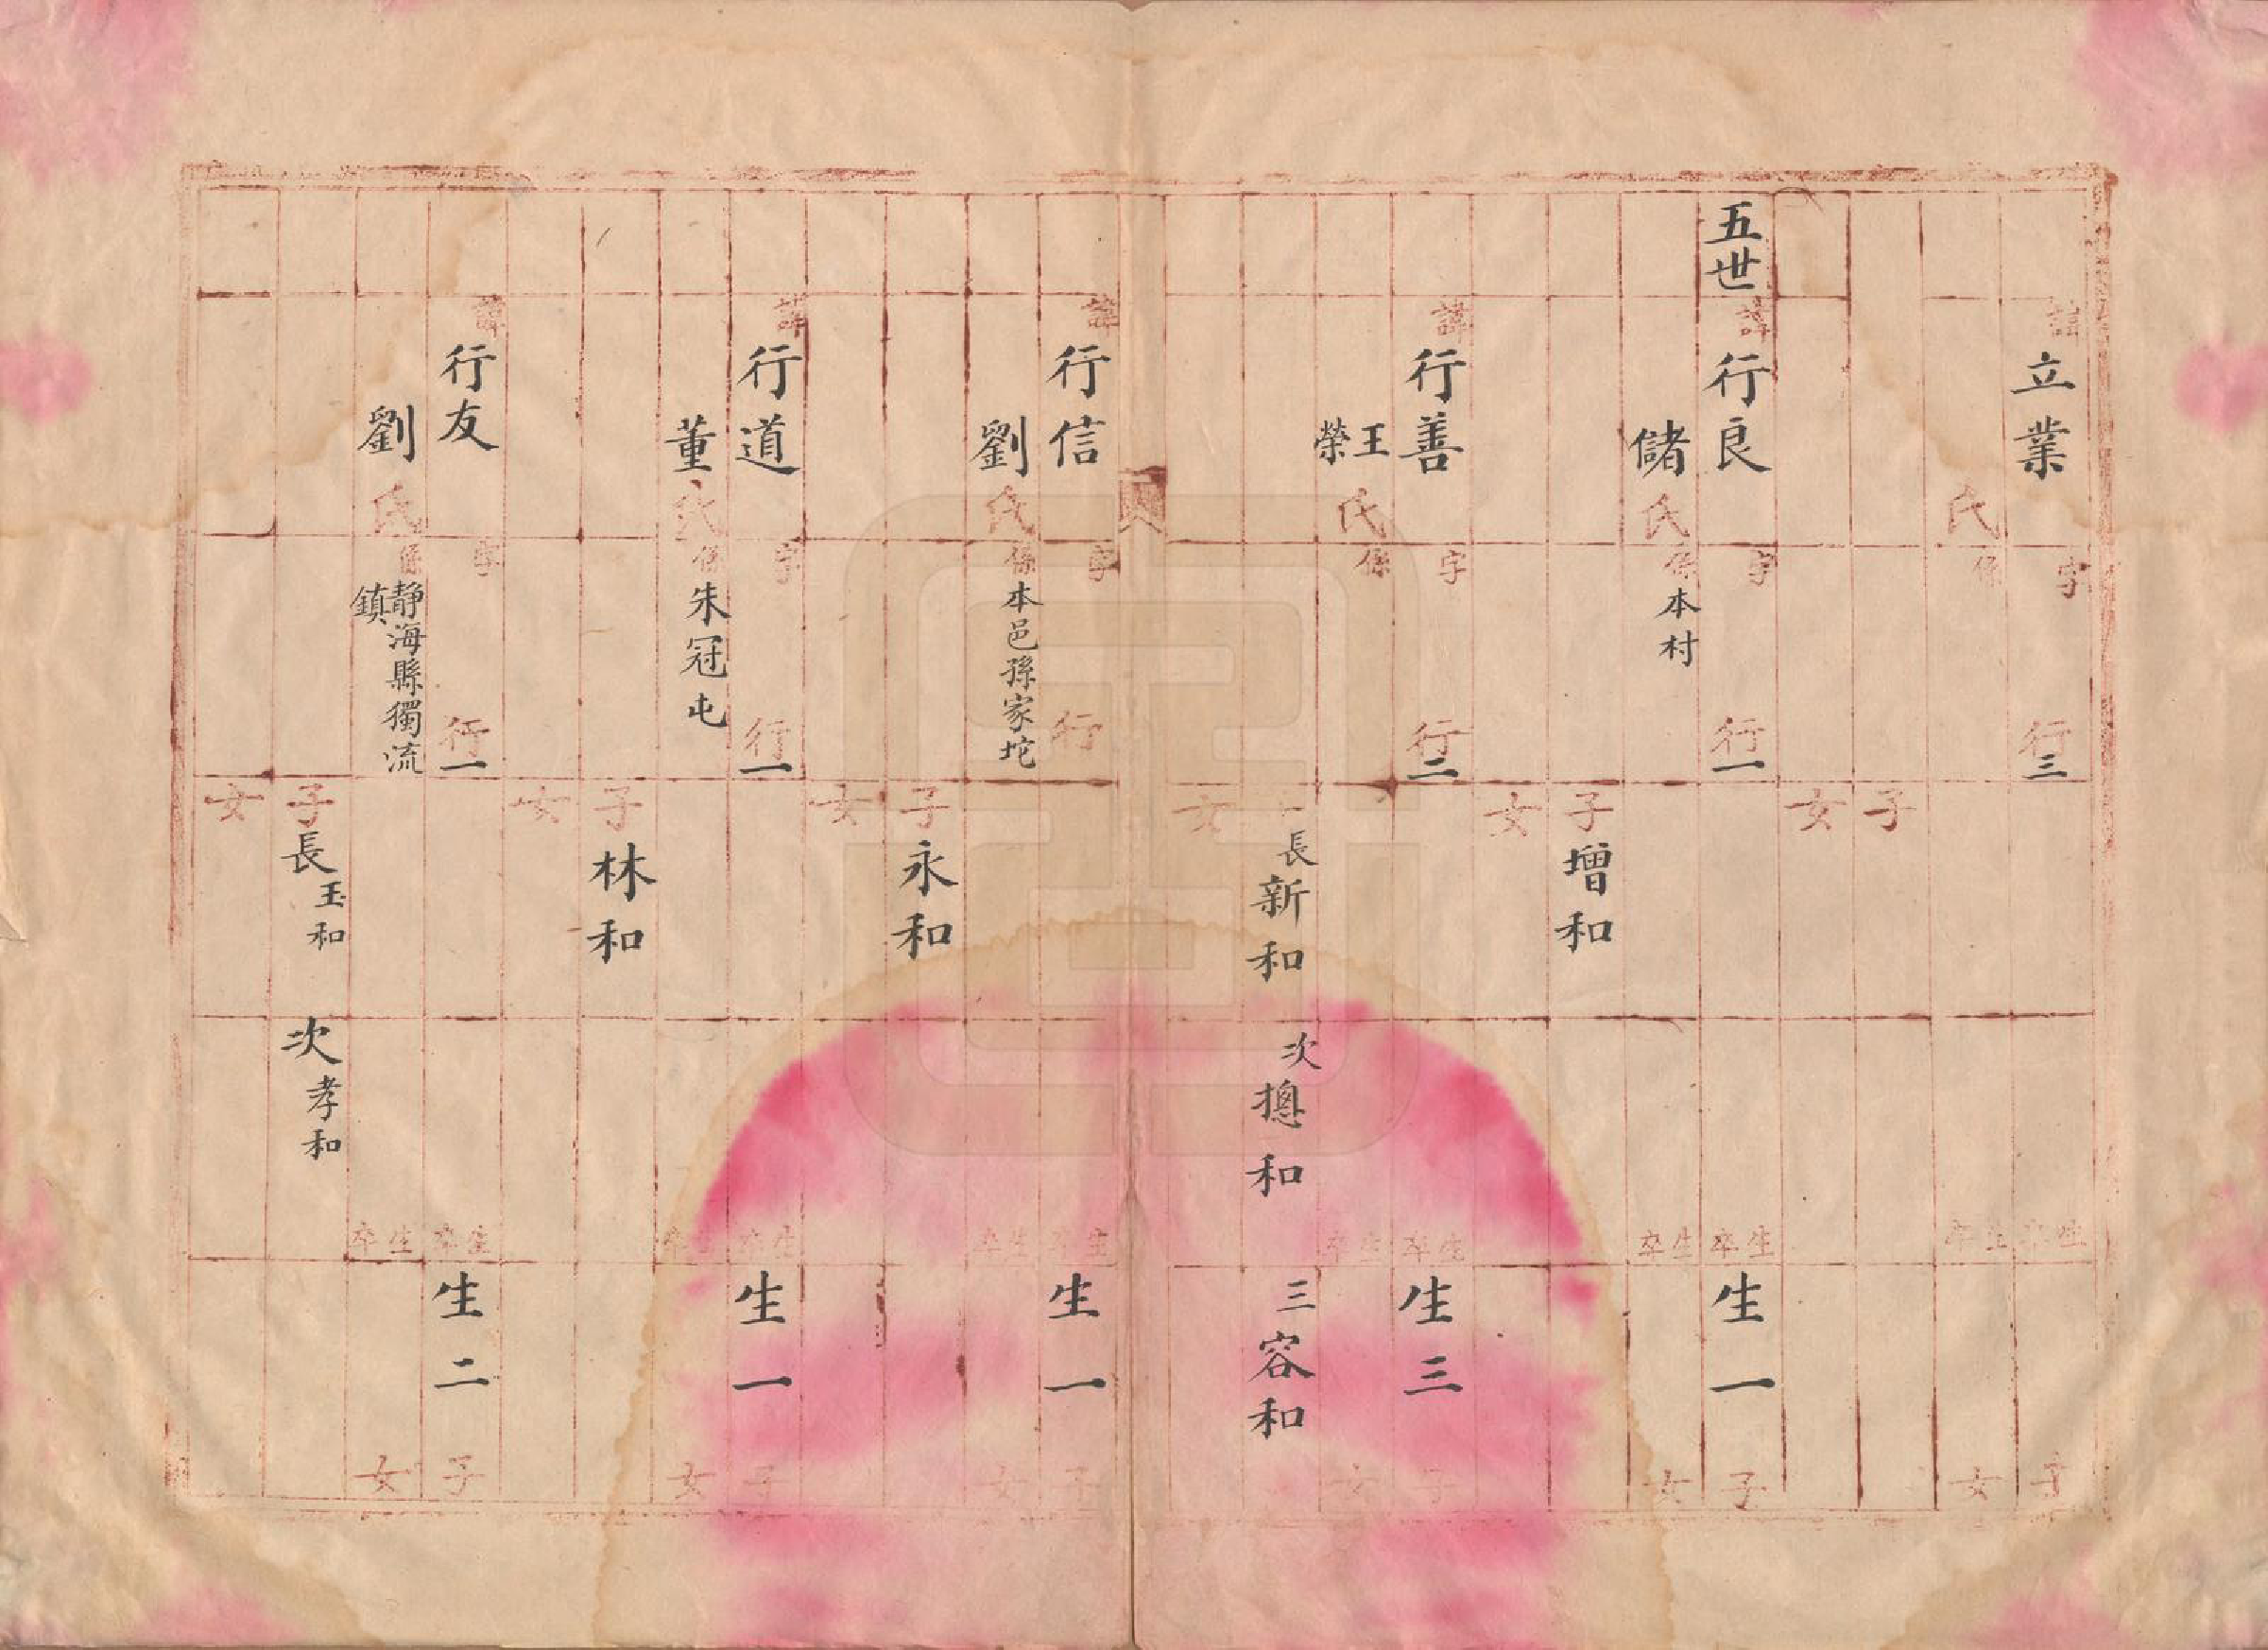 諱
立業
字
行三
氏
係
生卒
生卒
子
女
子
女
五世
諱
行良
字
行一
儲氏
係本村
生卒
生卒
生一
子
女
子增和
女
諱
行善
字
行二
王
榮
氏
係
生卒
生卒
生三
子
女
長新和
次摠和
三容和
女
諱
行信
字
行
劉氏
係本邑孫家坨
生卒
生卒
生一
子
女
子永和
女
諱
行道
字
行一
董氏
係朱冠屯
生卒
生卒
生一
子
女
子林和
女
諱
行友
字
行一
劉氏
係靜海縣獨流
鎮
生卒
生卒
生二
子
女
子長玉和
次孝和
女